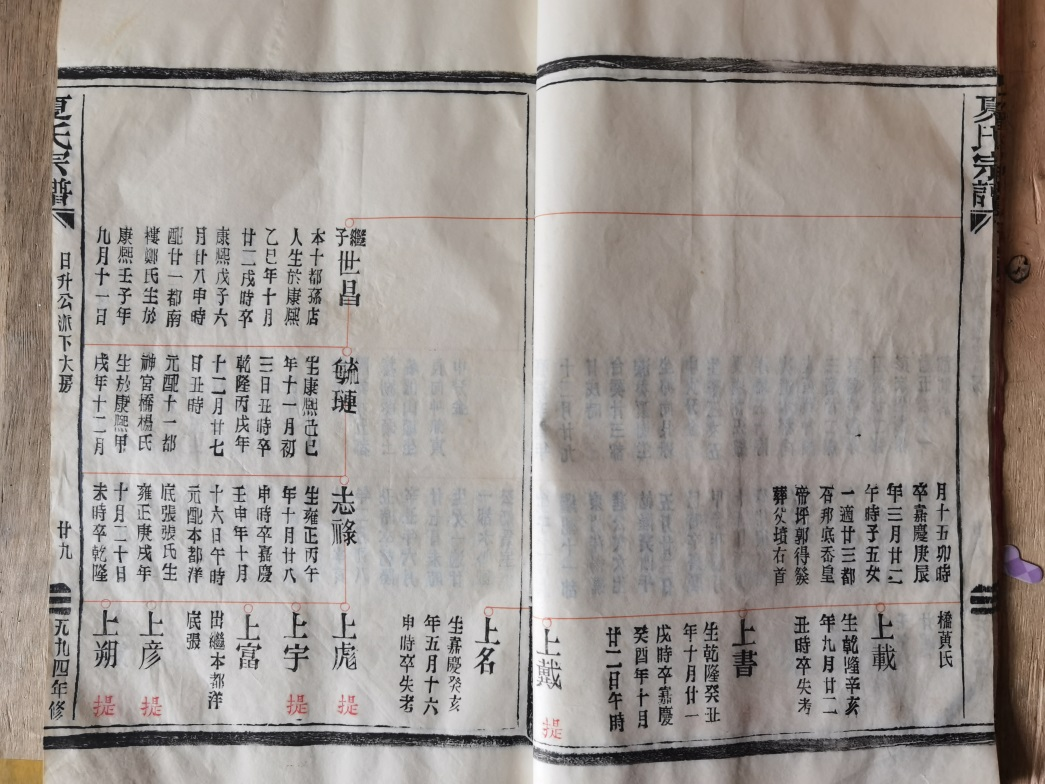 夏氏宗譜
月十五卯時
卒嘉慶庚辰
年三月廿二
午時子五女
一適廿三都
石邦底岙皇
帝坪郭得發
葬父墳右首
橋黃氏
上載
生乾隆辛亥
年九月廿二
丑時卒失考
上書
生乾隆癸丑
年十月廿一
戌時卒嘉慶
癸酉年十月
廿二日午時
上戴
提
上名
生嘉慶癸亥
年五月十六
申時卒失考
繼子世昌
本十都孫店
人生於康熙
乙巳年十月
廿二戌時卒
康熙戊子六
月廿八申時
配廿一都南
樓鄭氏生於
康熙壬子年
九月十一日
毓璉
生康熙己巳
年十一月初
三日丑時卒
乾隆丙戌年
十二月廿七
日丑時
元配十一都
神宮橋楊氏
生於康熙甲
戌年十二月
志祿
生雍正丙午
年十月廿八
申時卒嘉慶
壬申年十月
十六日午時
元配本都洋
底張張氏生
雍正庚戌年
十月二十日
未時卒乾隆
上彪
提
上宇
提
上富
出繼本都洋
底張
上彥
提
上朔
提
夏氏宗譜
日升公派下大房
廿九
一九九四年修